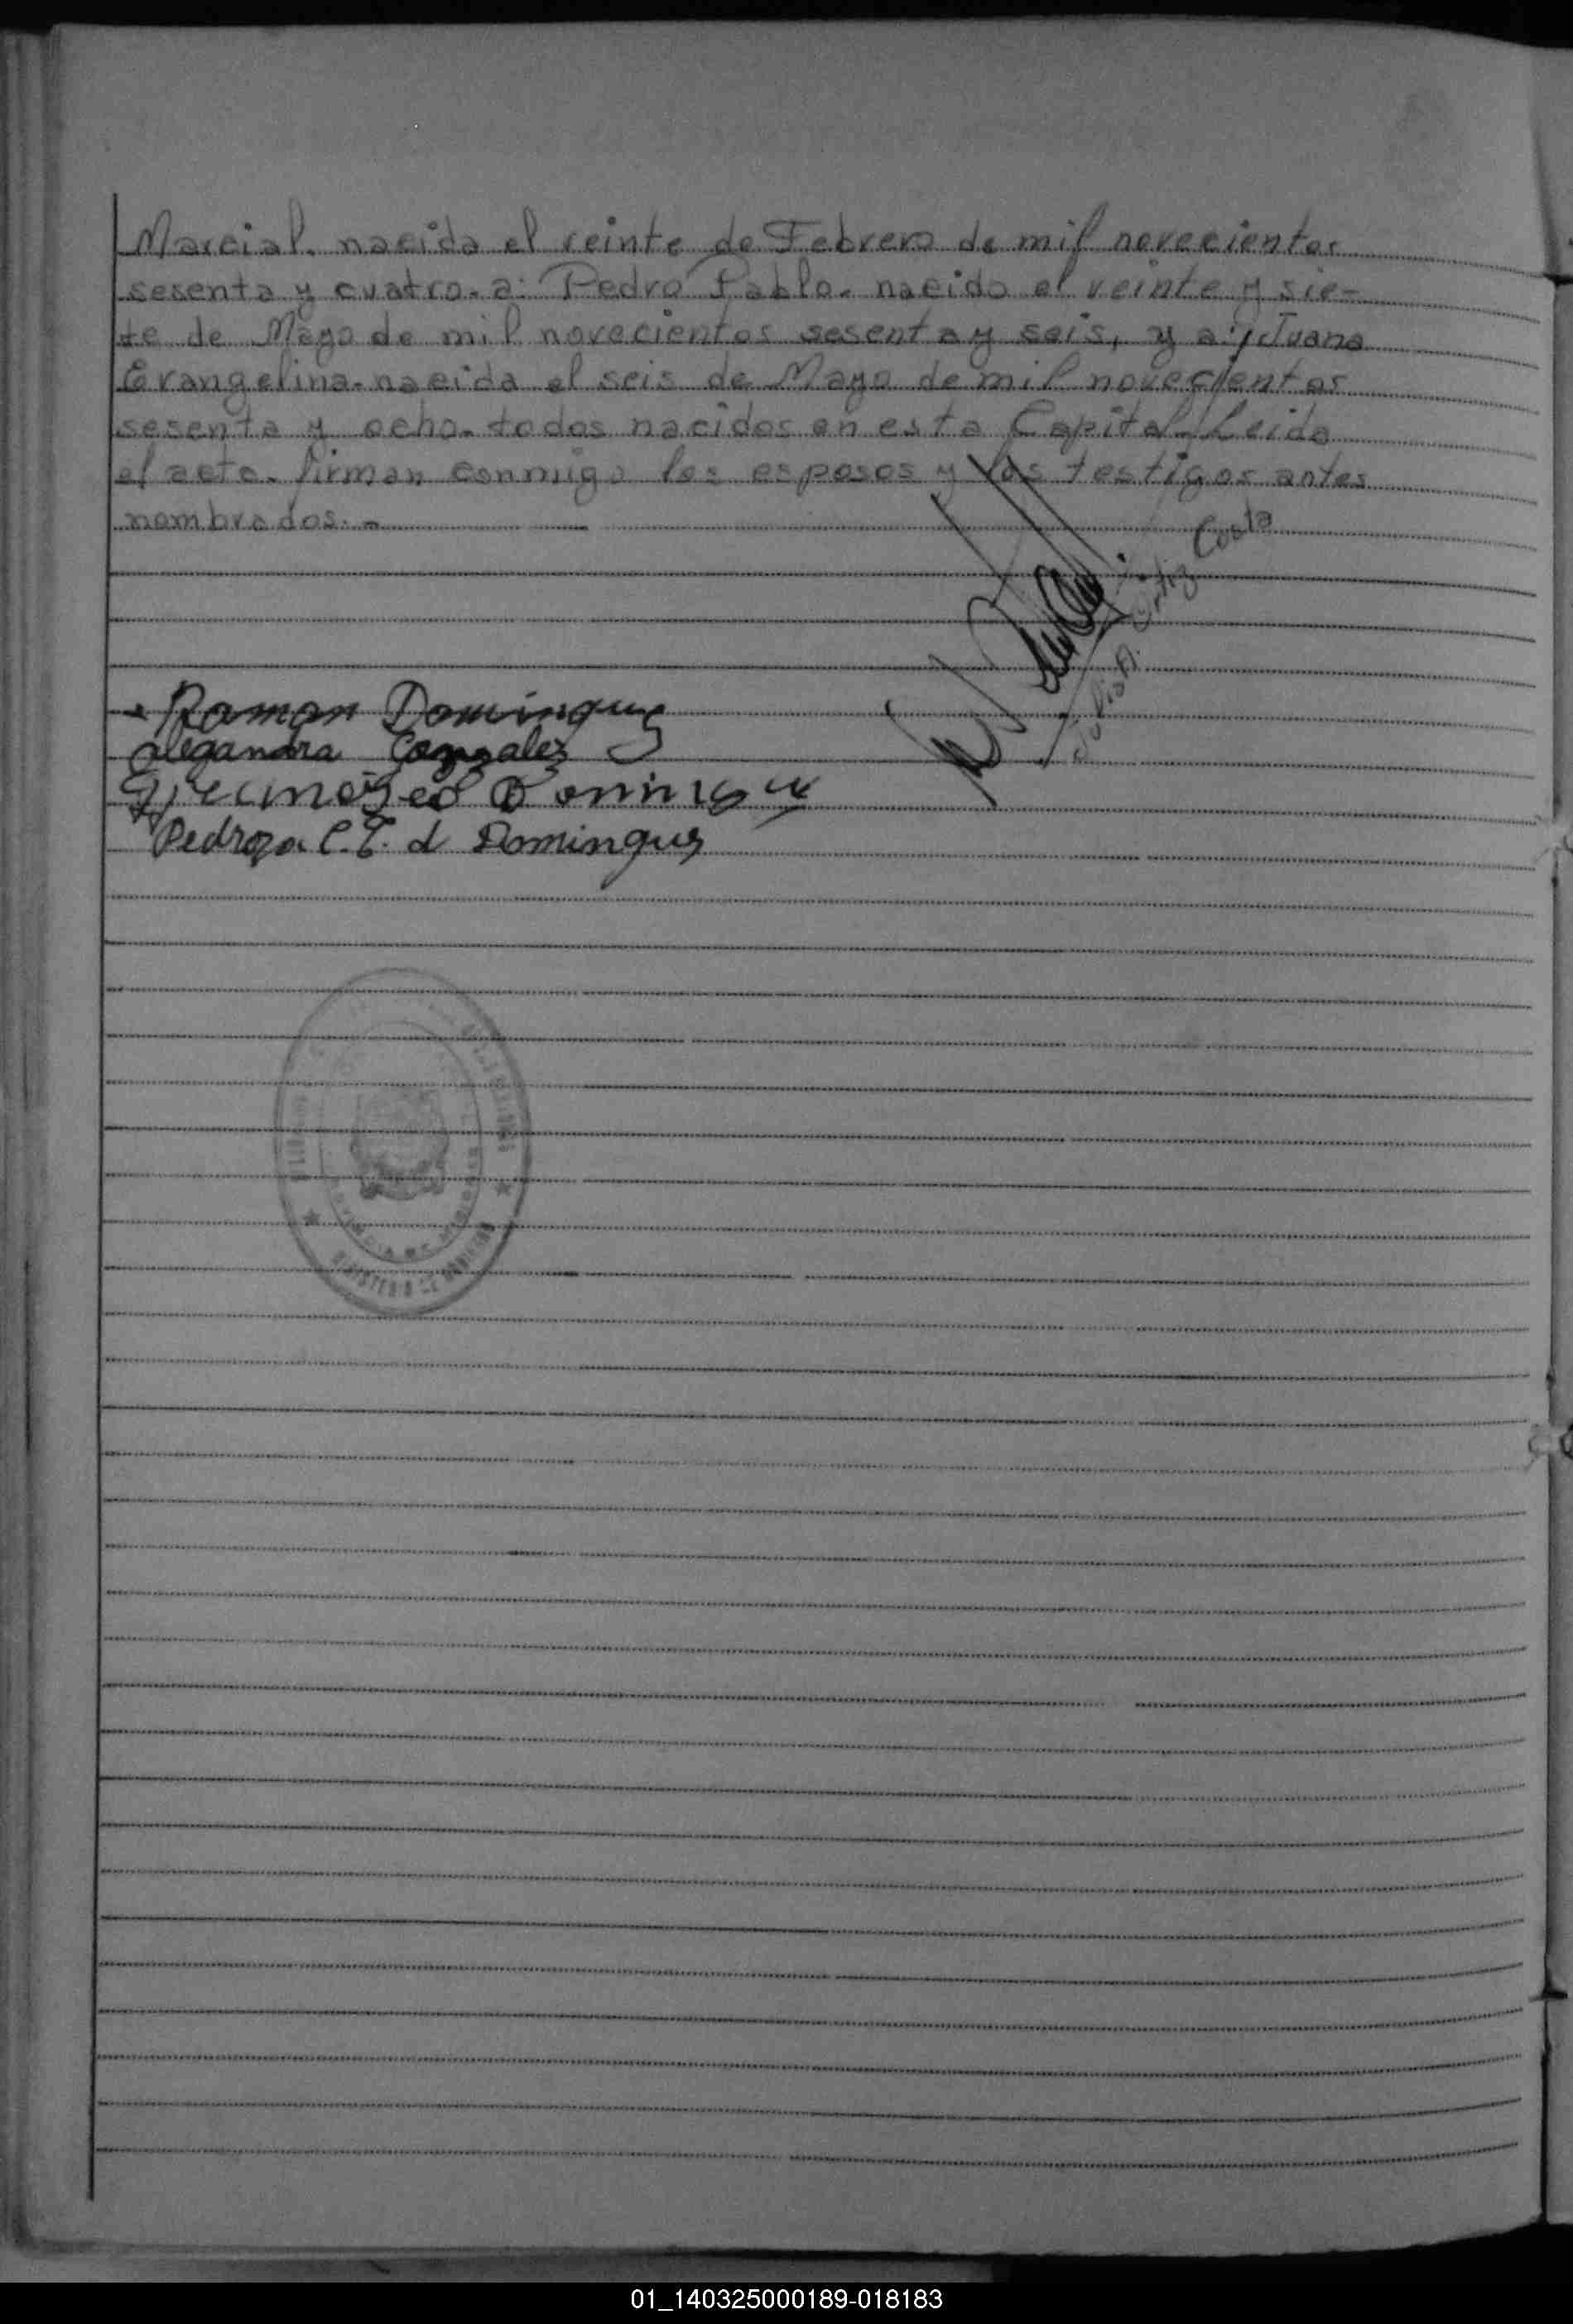 Marcial. nacida el veinte de Febrero de mil novecientos
sesenta y cuatro. a: Pedro Pablo. nacido el veinte y sie-
te de Mayo de mil novecientos sesenta y seis, y a: Juana
Evangelina. nacida el seis de Mayo de mil novecientos
sesenta y ocho. todos nacidos en esta Capital. Leida
el acta. firman conmigo los esposos y los testigos antes
nombrados. -
Ortiz Costa
Ramon Dominguez
Alegandra Gonzalez
Pedroza C. T. d Dominguez
01_140325000189-018183